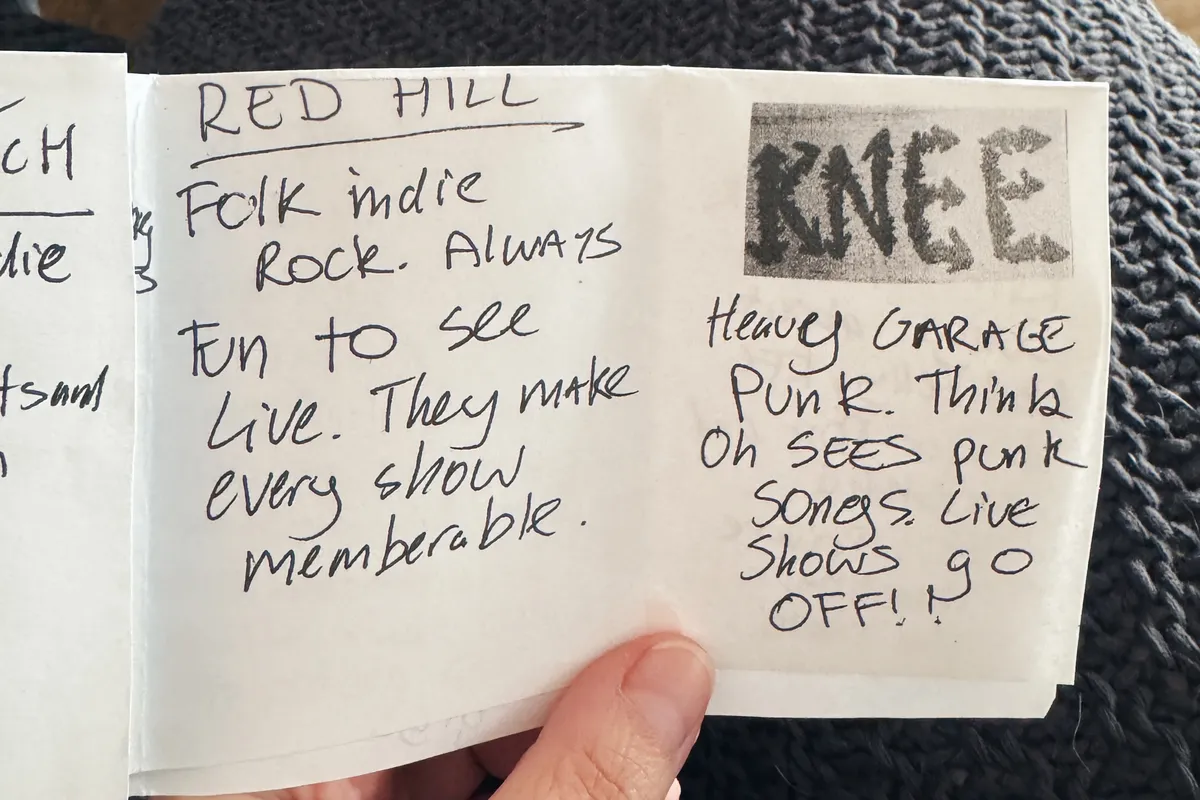 CH
die
RED HILL
Folk indie
Rock. Always
Fun to see
Live. They make
every show
memberable.
KNEE
Heavy GARAGE
Punk. Think
Oh SEES punk
Songs. Live
Shows go
OFF!!